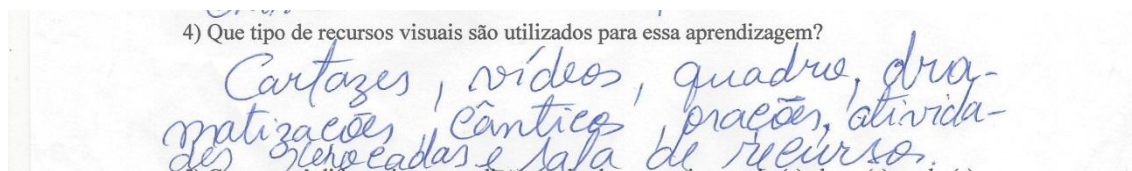 4) Que tipo de recursos visuais são utilizados para essa aprendizagem?
Cartazes, vídeos, quadro, dra-
matizações, cânticos, orações, ativida-
des e sala de recursos.